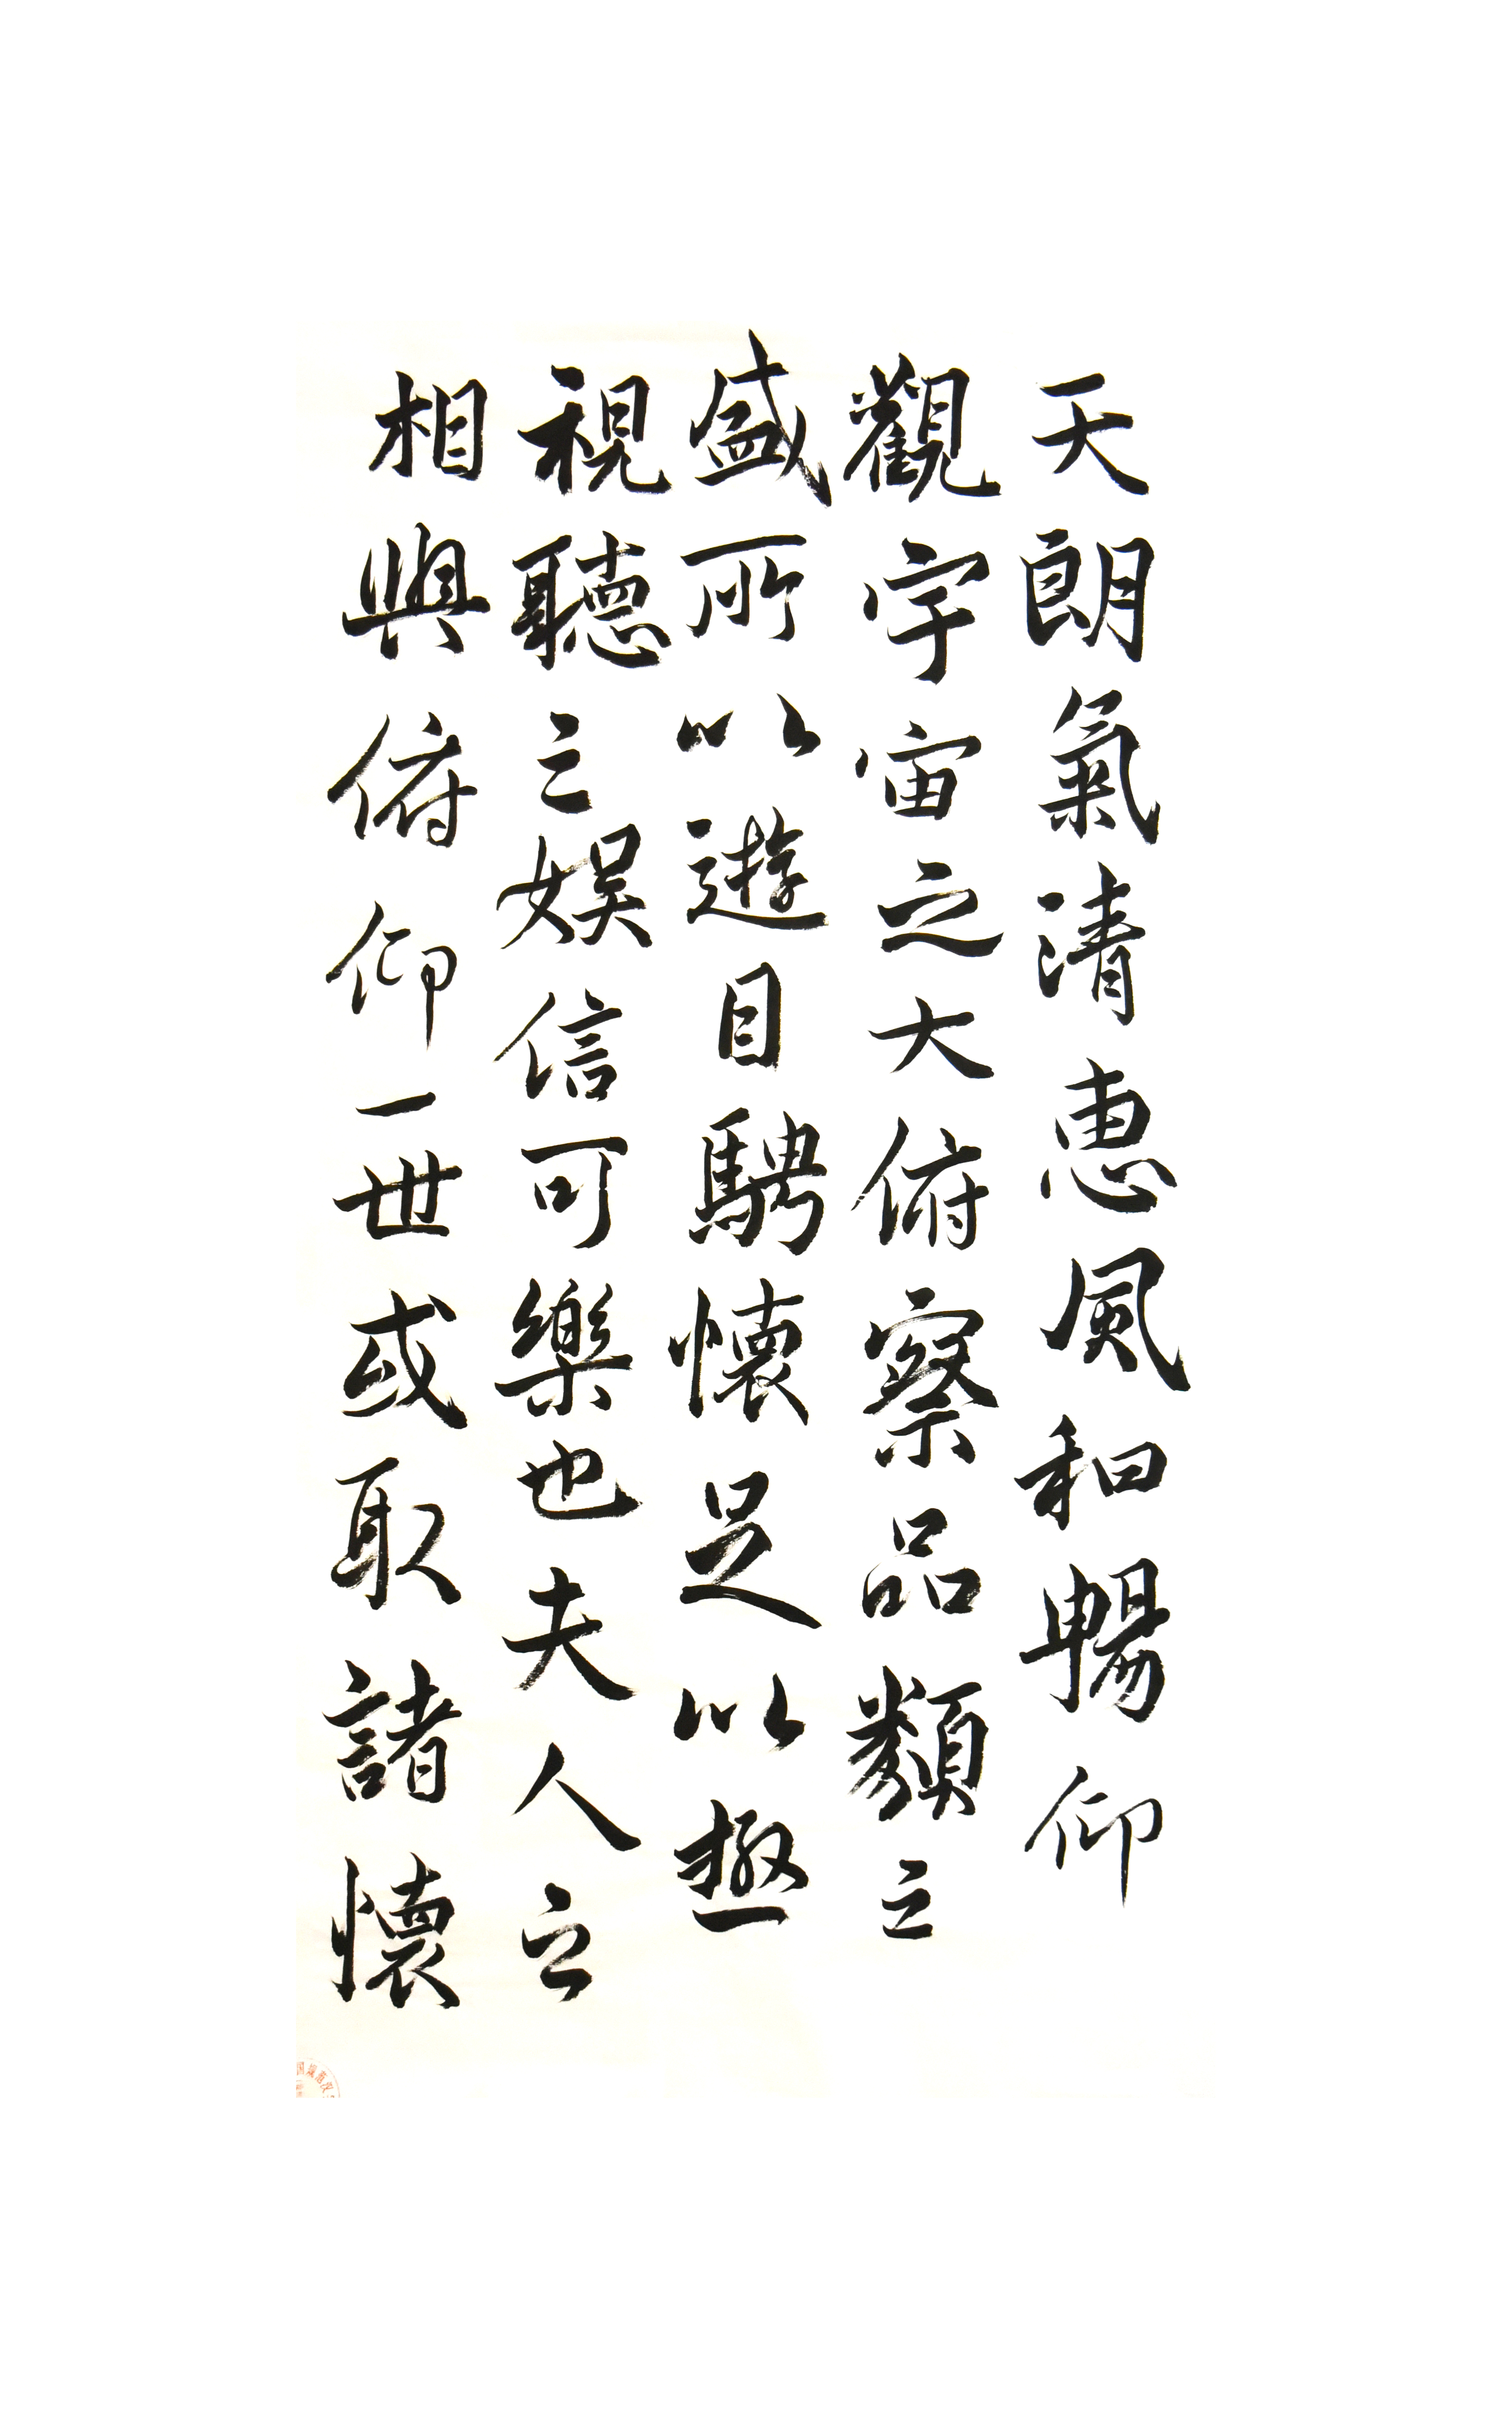 天朗氣清惠風和暢仰
觀宇宙之大俯察品類之
盛所以遊目騁懷足以極
視聽之娛信可樂也夫人之
相與俯仰一世或取諸懷